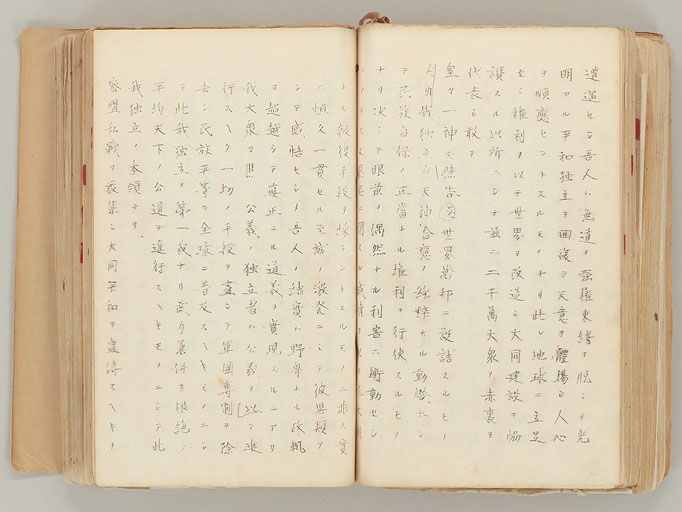 遭遇セシ吾人ハ無道ノ强權束縛ヲ脱シテ光
明アル平和独立ヲ回復シ天意ヲ軆揚シ人心
ヲ順應セントスルモノナリ此レ地球ニ立足
セシ権利ヲ以テ世界ヲ改造シ大同建設ヲ協
讃スル以所ニシテ茲ニ二千萬大衆ノ赤衷ヲ
代表シ敢テ
皇々一神ニ昭告シ世界萬邦ニ誕詰スルモノ
ナリ我独立ハ天神合應ノ純粹ナル動機ニシ
テ民族自保ノ正當ナル権利ヲ行使スルモノ
ナリ決シテ眼前ノ偶然ナル利害ニ衝動セシ
ナル報復手段ヲ ントスルモノニ非ス實
ニ恒久一貫セル至誠ノ激発ニシテ彼異類ヲ
シテ感悟セシメ吾人ノ結實ハ野卑ナル政軌
ヲ超越シテ真正ナル道義ヲ實現スルニアリ
我大衆ヨ!!! 公義ノ独立者ハ公義ヲ以テ進
行スヘク一切ノ手段ヲ盡シテ軍國専制ヲ除
去シ民族平等ヲ全球ニ普及スヘキモノニシ
テ此我独立ノ第一義ナリ武力兼併ヲ根絶シ
平均天下ノ公道ヲ進行スヘキモノニシテ此
我独立ノ本領ナリ、
密盟私戰ヲ嚴禁シ大同平和ヲ宣傳スヘキ